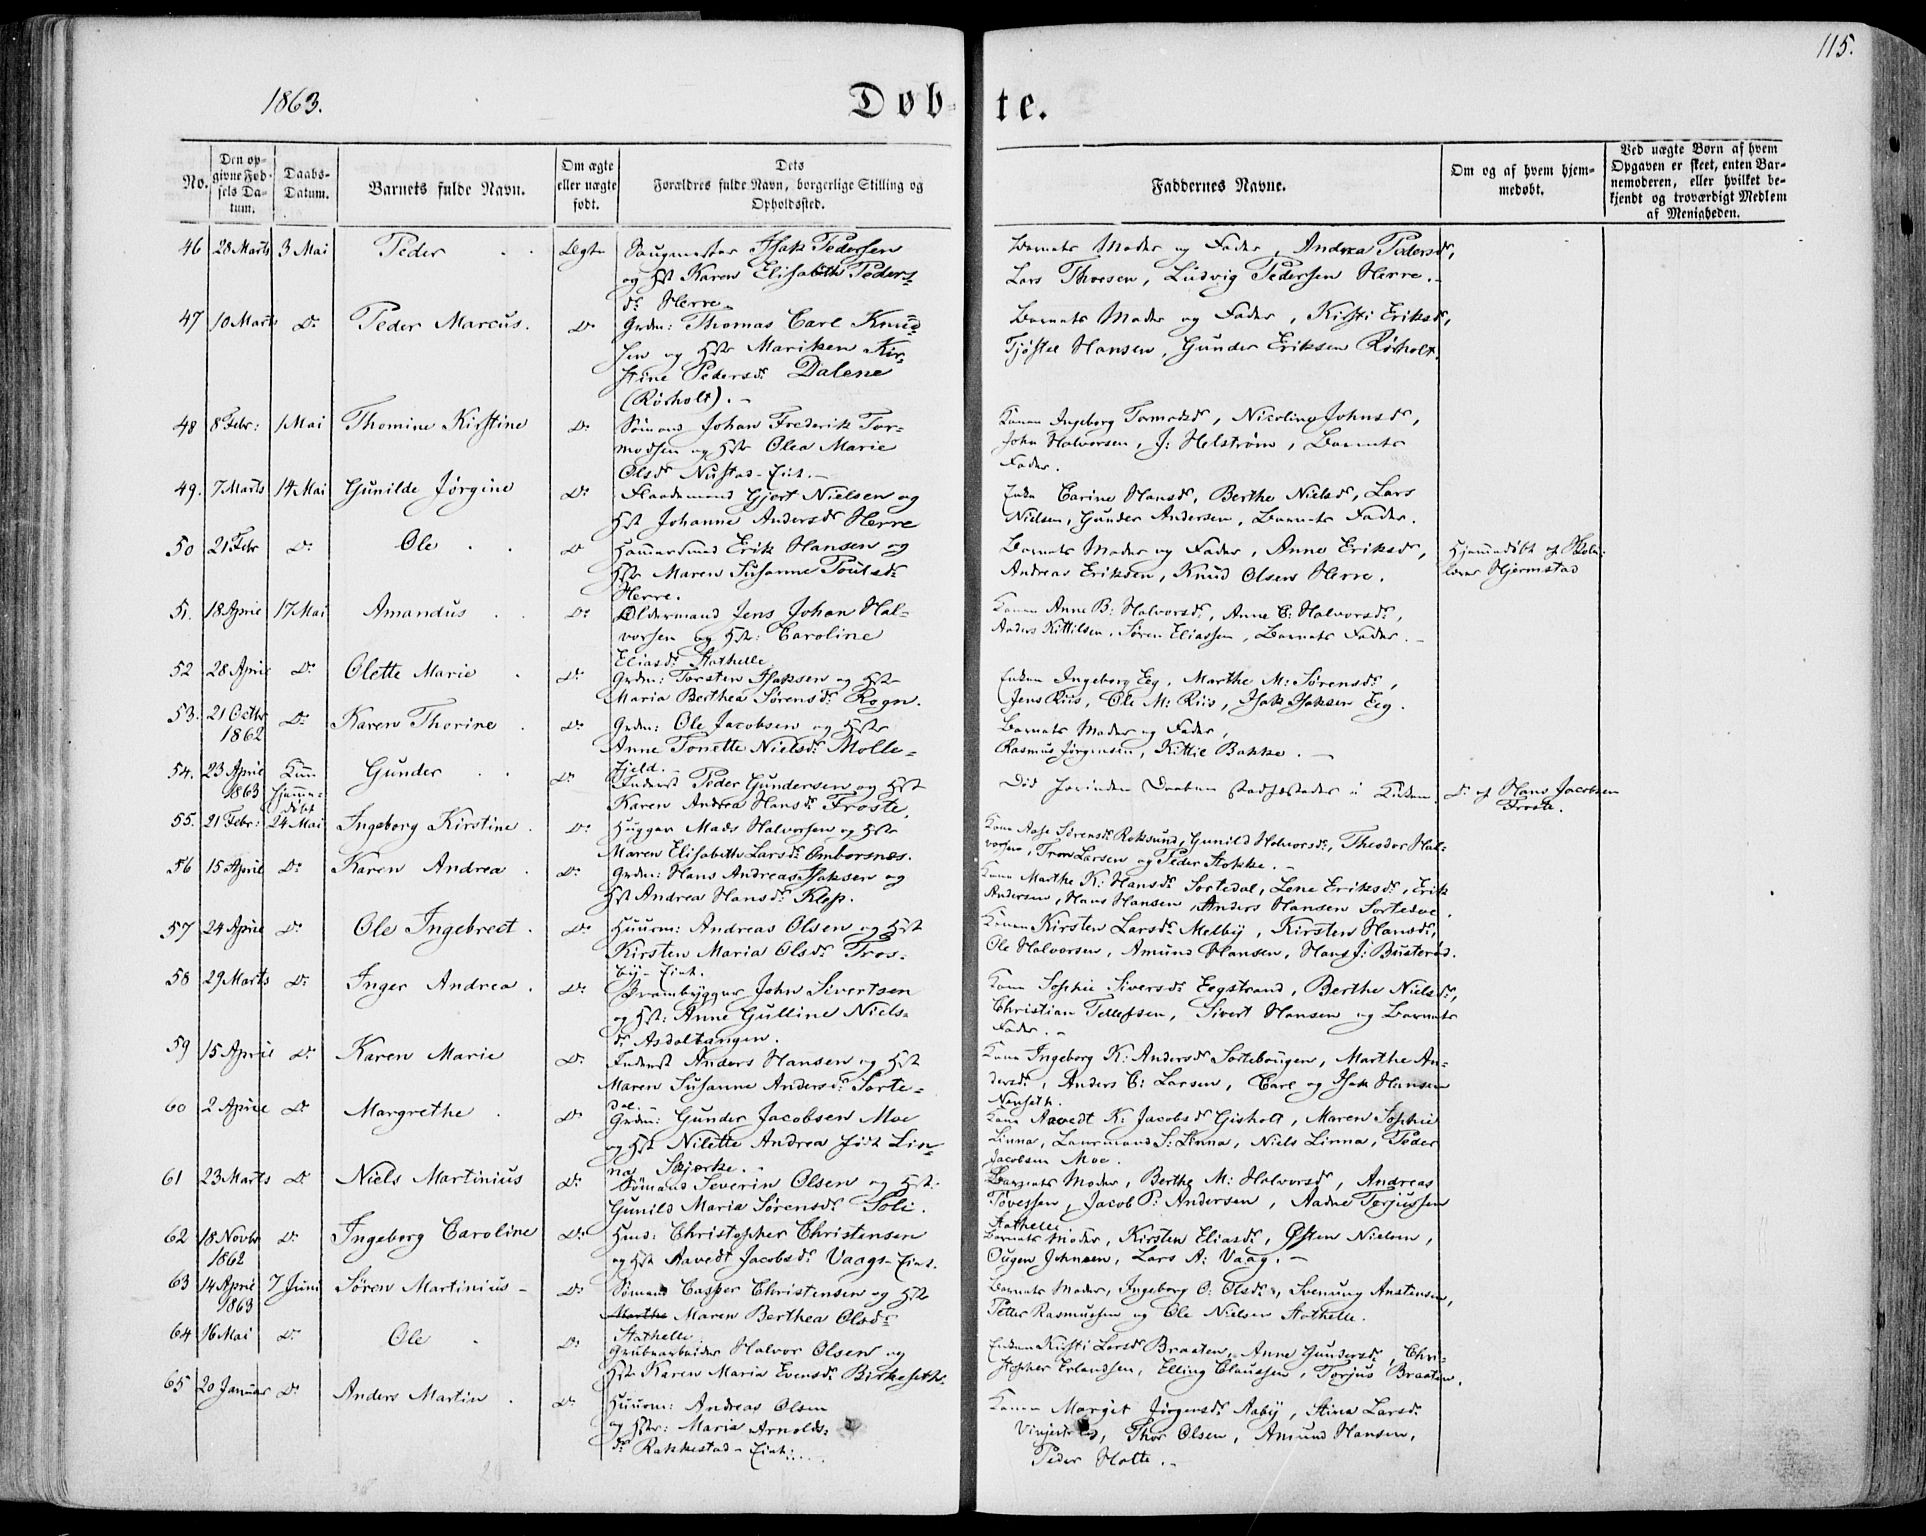 115.
1863.
Døb-
te.
No.
Den op-
givne Fød-
sels Da-
tum.
Daabs-
Datum.
Barnets fulde Navn.
Om ægte
eller uægte
født.
Dets
Forældres fulde Navn, borgerlige Stilling og
Opholdssted.
Faddernes Navne.
Om og af hvem hjem-
medøbt.
Ved uægte Børn af hvem
Opgaven er skeet, enten Bar-
nemoderen, eller hvilket be-
kjendt og troværdigt Medlem
af Menigheden.
46 28 Marts 3 Mai Peder Ægte Saugmester Isak Pedersen
og Hst Karen Elisabeth Peders-
dr. Herre.
Barnets Moder og Fader, Andrea Pedersdr,
Lars Thoresen, Ludvig Pedersen Herre.
47 10 Marts Do Peder Marcus. Do Grdm: Thomas Carl Knud-
sen og Hst Mariken Kir-
stine Pedersdr. Dalene
(Rørholt).
Barnets Moder og Fader, Kirsti Eriksdr,
Tjøstel Hansen, Gunder Eriksen Rørholt.
48 8 Febr: 1 Mai Thomine Kirstine Do Sømand Johan Frederik Tor-
modsen og Hst Olea Marie
Olsdr Nustad-Eiet.
Konen Ingeborg Tormodsdr, Nicoline Johnsdr,
John Halvorsen, J: Helstrøm, Barnets
Fader.
49. 7 Marts 14 Mai Gunilde Jørgine Do Flaademand Gjert Nielsen og
Hst Johanne Andersdr Herre
Enke Carine Hansdr, Berthe Nielsdr, Lars
Nielsen, Gunder Andersen, Barnets Fader.
50 21 Febr Do Ole Do Hammersmed Erik Hansen og
Hst Maren Susanne Poulsdr
Herre.
Barnets Moder og Fader, Anne Eriksdr,
Andreas Eriksen, Knud Olsen Herre.
Hjemmedøbt af Skole-
lærer Hjermstad
51. 18 April 17 Mai Amandus Do Oldermand Jens Johan Hal-
vorsen og Hst: Caroline
Eliasdr Stathelle
Konen Anne B: Halvorsdr, Anne C: Halvorsdr,
Anders Kittilsen, Søren Eliassen, Barnets Fader.
52 28 April Do Olette Marie Do Grdm: Torsten Isaksen og Hst
Maria Berthea Sørensdr. Rogn.
Enken Ingeborg Eeg, Marthe M: Sørensdr,
Jens Riis, Ole M: Riis, Isak Isaksen Eeg.
53. 21 Octbr
1862 Do Karen Thorine Do Grdm: Ole Jacobsen og Hst
Anne Tonette Nielsdr. Molle-
fjeld.
Barnets Moder og Fader,
Rasmus Jørgensen, Kittil Bakke.
54. 23 April
1863 Kun
hjemme-
døbt Gunder Do Inderst Peder Gundersen og Hst
Karen Andrea Hansdr. Froste.
Død forinden Daaben stadfæstedes i Kirken.
Do af Hans Jacobsen
Froste.
55. 21 Febr: 24 Mai Ingeborg Kirstine. Do Hugger Mads Halvorsen og Hst
Maren Elisabeth Larsdr. Omborsnes.
Kone Aase Sørensdr. Roksund, Gunild Halvorsdr, Theodor Hal-
vorsen, Tron Larsen og Peder Stokke.
56 15 April Do Karen Andrea. Do Grdm: Hans Andreas Isaksen og
Hst Andrea Hansdr. Klep.
Kone Marthe K: Hansdr Sortedal, Lene Eriksdr, Erik
Andersen, Hans Hansen, Anders Hansen Sortedal.
57 24 April Do Ole Ingebrect. Do Huusm: Andreas Olsen og Hst
Kirsten Maria Olsdr. Tros-
by-Eiet.
Konen Kirsten Larsdr. Melby, Kirsten Hansdr,
Ole Halvorsen, Amund Hansen, Hans J: Busterød.
58 29 Marts Do Inger Andrea. Do Prambygger John Sivertsen
og Hst: Anne Gulline Niels-
dr. Asdaltangen.
Kone Sophie Siversdr. Eegstrand, Berthe Nielsdr,
Christian Tellefsen, Sivert Hansen og Barnets
Fader.
59 15 April Do Karen Marie Do Inderst Anders Hansen og Hst
Maren Susanne Andersdr. Sorte-
dal.
Kone Ingeborg K: Andersdr Sortebougen, Marthe An-
dersdr, Anders C: Larsen, Carl og Isak Hansen
Nenseth.
60 2 April Do Margrethe Do Grdm: Gunder Jacobsen Moe
og Hst Nilette Andrea født Lin-
na Skjerke.
Kone Aavedt K: Jacobsdr Gisholt, Maren Sophie
Linna, Lensmand S: Linna, Niels Linna, Peder
Jacobsen Moe.
61 23 Marts Do Niels Martinius Do Sømand Severin Olsen og Hst
Gunild Maria Sørensdr. Soli.
Barnets Moder, Berthe M: Halvorsdr, Andreas
Tovessen, Jacob P: Andersen, Aadne Terjussen
Stathelle.
62 18 Novbr
1862 Do Ingeborg Caroline Do Huus: Christopher Christensen
og Hst Aavedt Jacobsdr. Vaags-Eiet.
Barnets Moder, Kirsten Eliasdr, Østen Nielsen,
Ougen Johnsen, Lars A: Vaag.
63 14 April
1863 7 Juni Søren Martinius Do Sømand Casper Christensen og Hst
Marthe Maren Berthea Olsdr
Stathelle
Barnets Moder, Ingeborg O: Olsdr, Svenung Anstensen,
Petter Rasmussen og Ole Nielsen Stathelle.
64 16 Mai Do Ole Do Grubearbeider Halvor Olsen og
Hst Karen Maria Evensdr. Birkeseth.
Enken Kirsti Larsdr Braaten, Anne Gundersdr, Chri-
stopher Erlandsen, Elling Claussen, Torjus Braaten.
65 20 Januar Do Anders Martin. Do Huusm: Andreas Olsen
og Hst: Maria Arnolds-
dr Rakkestad-Eiet:
Konen Margit Jørgensdr. Aaby, Stina Larsdr.
Thor Olsen, Amund Hansen,
Peder Holte.